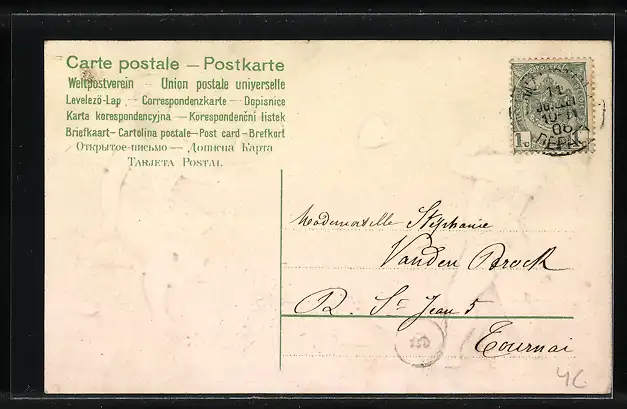 Carte postale — Postkarte
Weltpostverein — Union postale universelle
Levelező-Lap — Correspondenzkarte — Dopisnice
Karta korespondencyjna — Korespondenční listek
Briefkaart - Cartolina postale - Post card - Brefkort
Открытое-письмо — Дописна Карта
Tarjeta Postal
11
06
DÉPART
1c 1c
Mademoiselle Stéphanie
Vanden Brock
R. St Jean 5
Tournai
4c